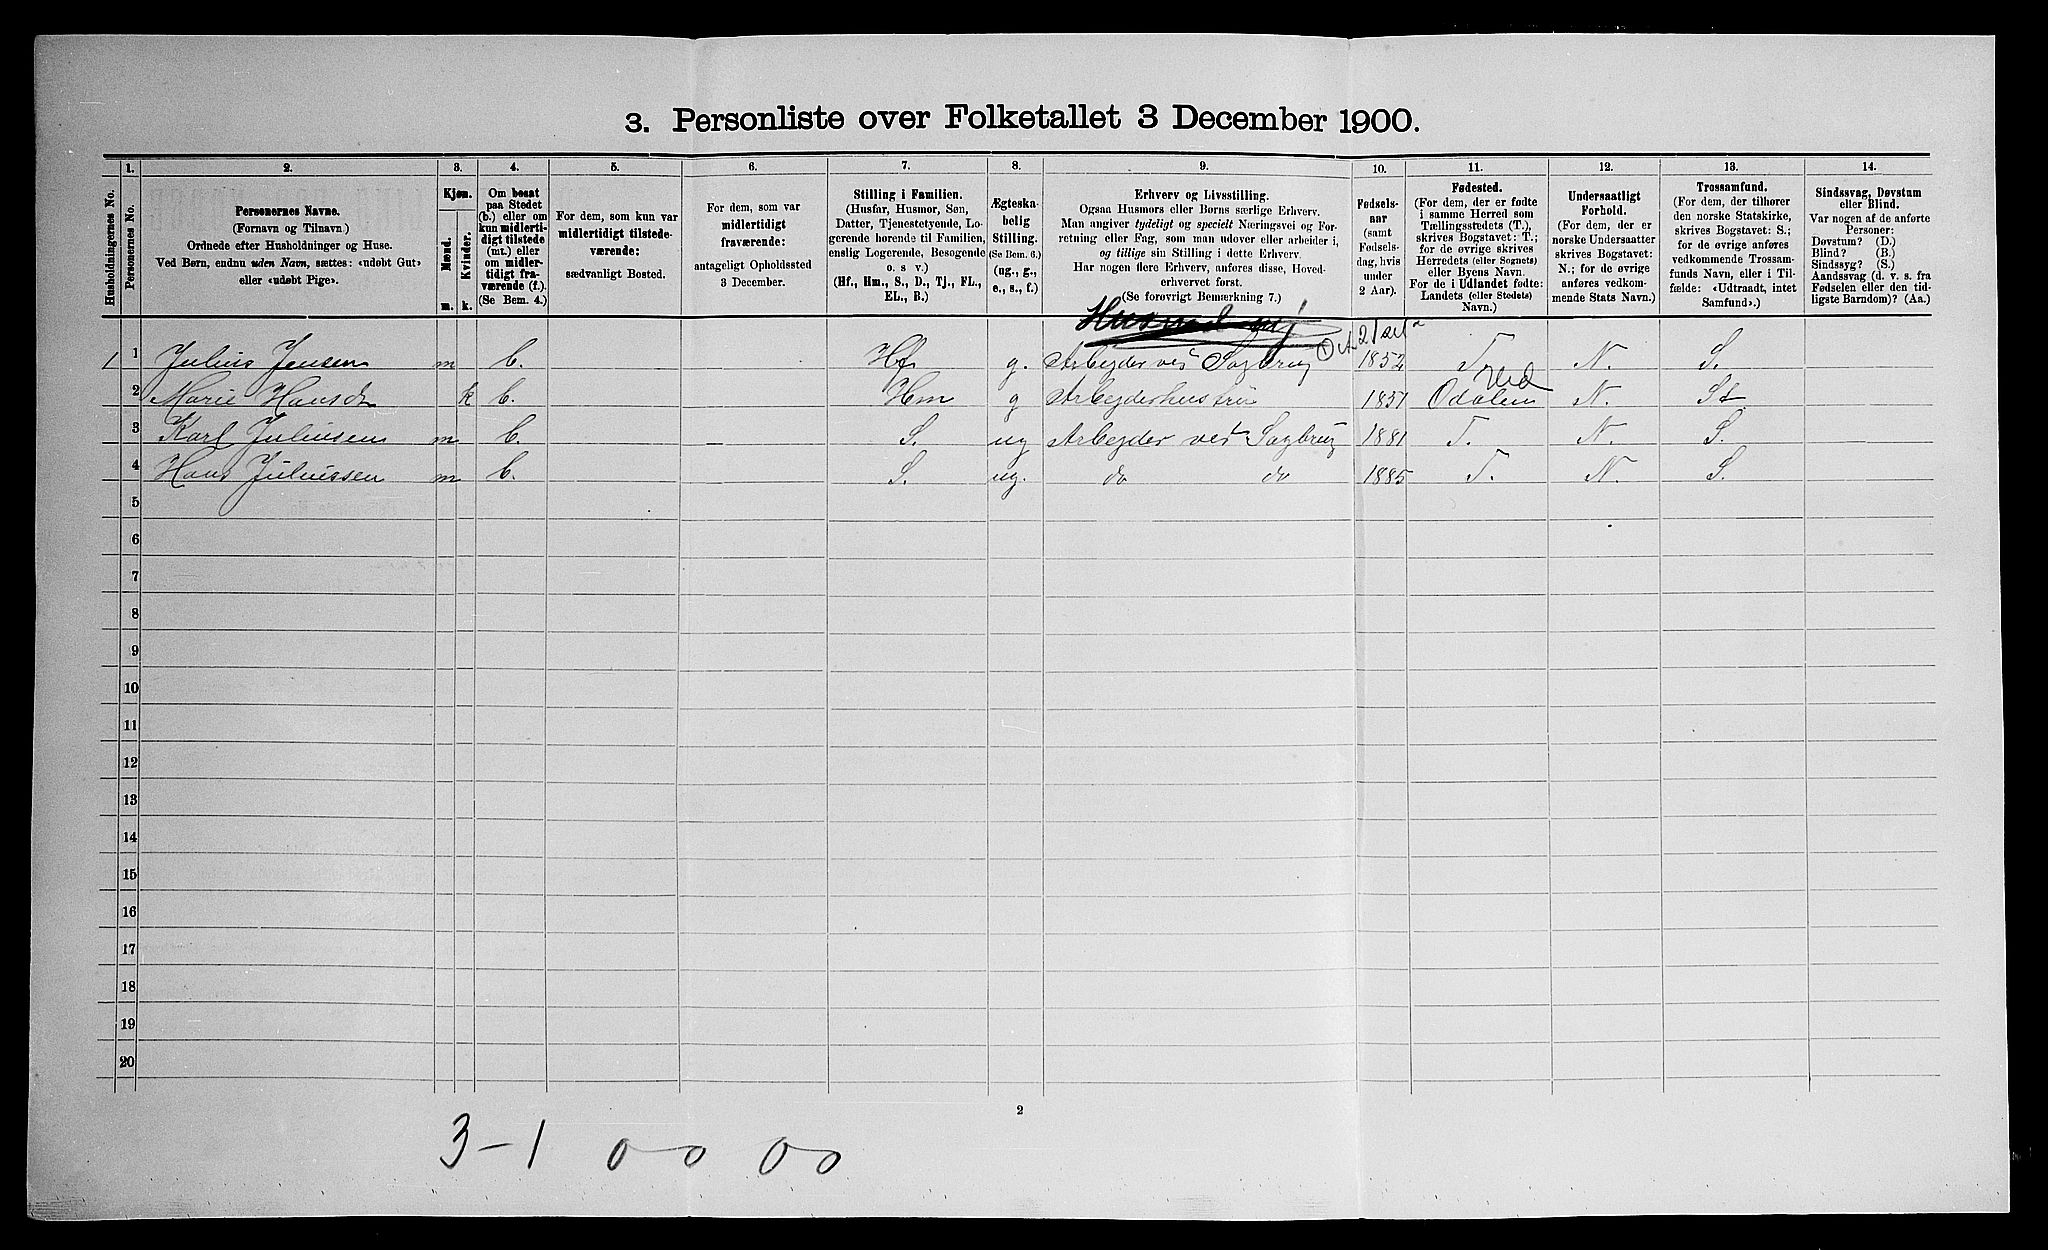 3. Personliste over Folketallet 3 December 1900.
1. 2. 3. 4. 5. 6. 7. 8. 9. 10. 11. 12. 13. 14.
Husholdningernes No.
Personernes No.
Personernes Navne.
(Fornavn og Tilnavn.)
Ordnede efter Husholdninger og Huse.
Ved Børn, endnu uden Navn, sættes: «udøbt Gut»
eller «udøbt Pige».
Kjøn.
Mænd.
Kvinder.
m. k.
Om bosat
paa Stedet
(b.) eller om
kun midlerti-
digt tilstede
(mt.) eller
om midler-
tidigt fra-
værende (f.)
(Se Bem. 4.)
For dem, som kun var
midlertidigt tilstede-
værende:
sædvanligt Bosted.
For dem, som var
midlertidigt
fraværende:
antageligt Opholdssted
3 December.
Stilling i Familien.
(Husfar, Husmor, Søn,
Datter, Tjenestetyende, Lo-
gerende hørende til Familien,
enslig Logerende, Besøgende
o. s v.)
(Hf., Hm., S., D., Tj., FL.,
EL., B.)
Ægteska-
belig
Stilling.
(Se Bem. 6.)
(ug., g.,
e., s., f.)
Erhverv og Livsstilling.
Ogsaa Husmors eller Børns særlige Erhverv.
Man angiver tydeligt og specielt Næringsvei og For-
retning eller Fag, som man udover eller arbeider i,
og tillige sin Stilling i dette Erhverv.
Har nogen flere Erhverv, anføres disse, Hoved-
erhvervet først.
(Se forøvrigt Bemærkning 7.)
Fødsels-
aar
(samt
Fødsels-
dag, hvis
under
2 Aar).
Fødested.
(For dem, der er fødte
i samme Herred som
Tællingsstedets (T.),
skrives Bogstavet: T.;
for de øvrige skrives
Herredets (eller Sognets)
eller Byens Navn.
For de i Udlandet fødte:
Landets (eller Stedets)
Navn.)
Undersaatligt
Forhold.
(For dem, der er
norske Undersaatter
skrives Bogstavet:
N.; for de øvrige
anføres vedkom-
mende Stats Navn.)
Trossamfund.
(For dem, der tilhører
den norske Statskirke,
skrives Bogstavet: S.;
for de øvrige anføres
vedkommende Trossam-
funds Navn, eller i Til-
fælde: «Udtraadt, intet
Samfund».)
Sindssvag, Døvstum
eller Blind.
Var nogen af de anførte
Personer:
Døvstum? (D.)
Blind? (B.)
Sindssyg? (S.)
Aandssvag (d. v. s. fra
Fødselen eller den tid-
ligste Barndom)? (Aa.)
1 1 Julius Jensen m b. Hf g. Arbejder ved Sagbrug 1852 T N. S.
2 Marie Hansdr k b. Hm g Arbejderhustru 1851 Odalen N. St
3 Karl Juliussen m b. S. ug Arbejder ved Sagbrug 1881 T. N. S.
4 Hans Juliussen m b. S. ug. do do 1885 T. N. S.
5
6
7
8
9
10
11
12
13
14
15
16
17
18
19
20
2
3-1 0-0 0-0